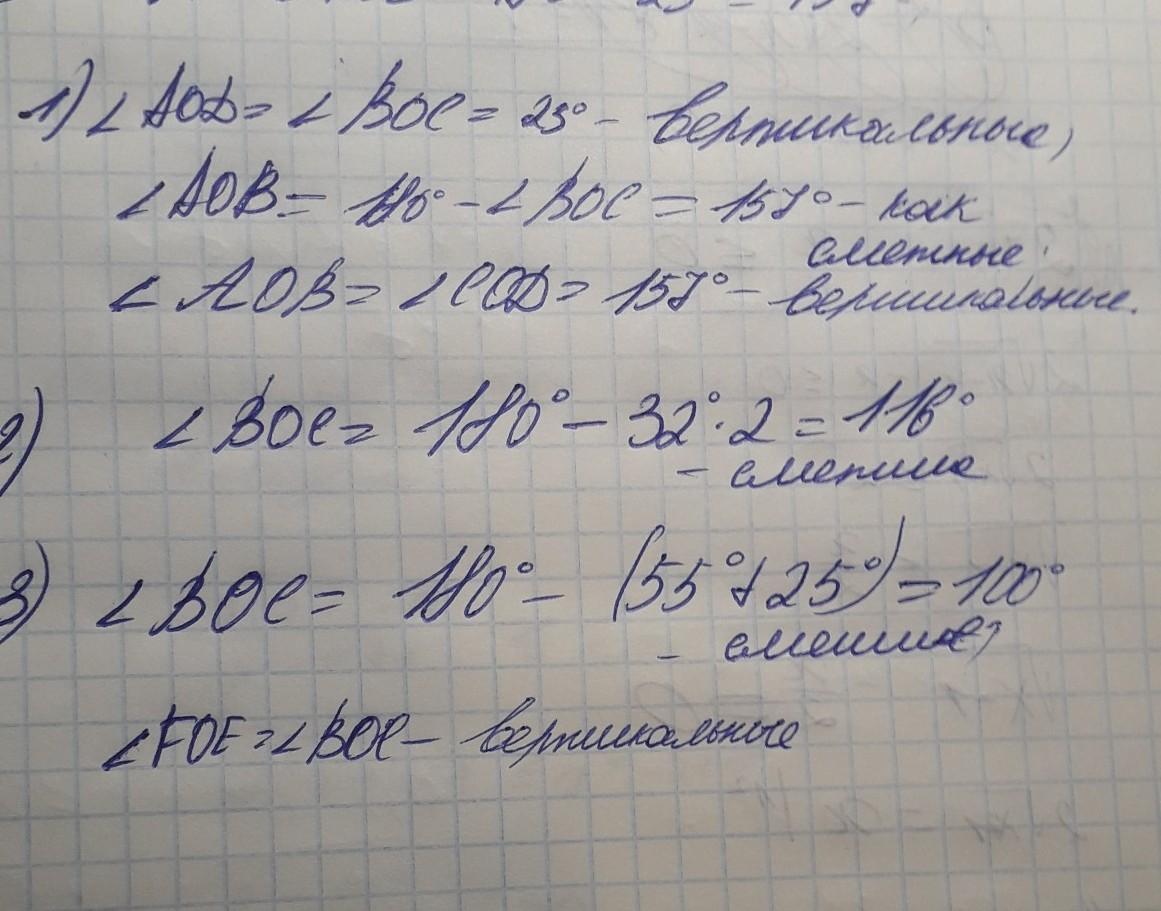 1) ∠AOD = ∠BOC = 23° - вертикальные,
∠AOB = 180° - ∠BOC = 157° - как
смежные
∠AOB = ∠COD = 157° - вертикальные.
2) ∠BOC = 180° - 32° · 2 = 116°
- смежные
3) ∠BOC = 180° - (55° + 25°) = 100°
- смежные,
∠FOE = ∠BOC - вертикальные